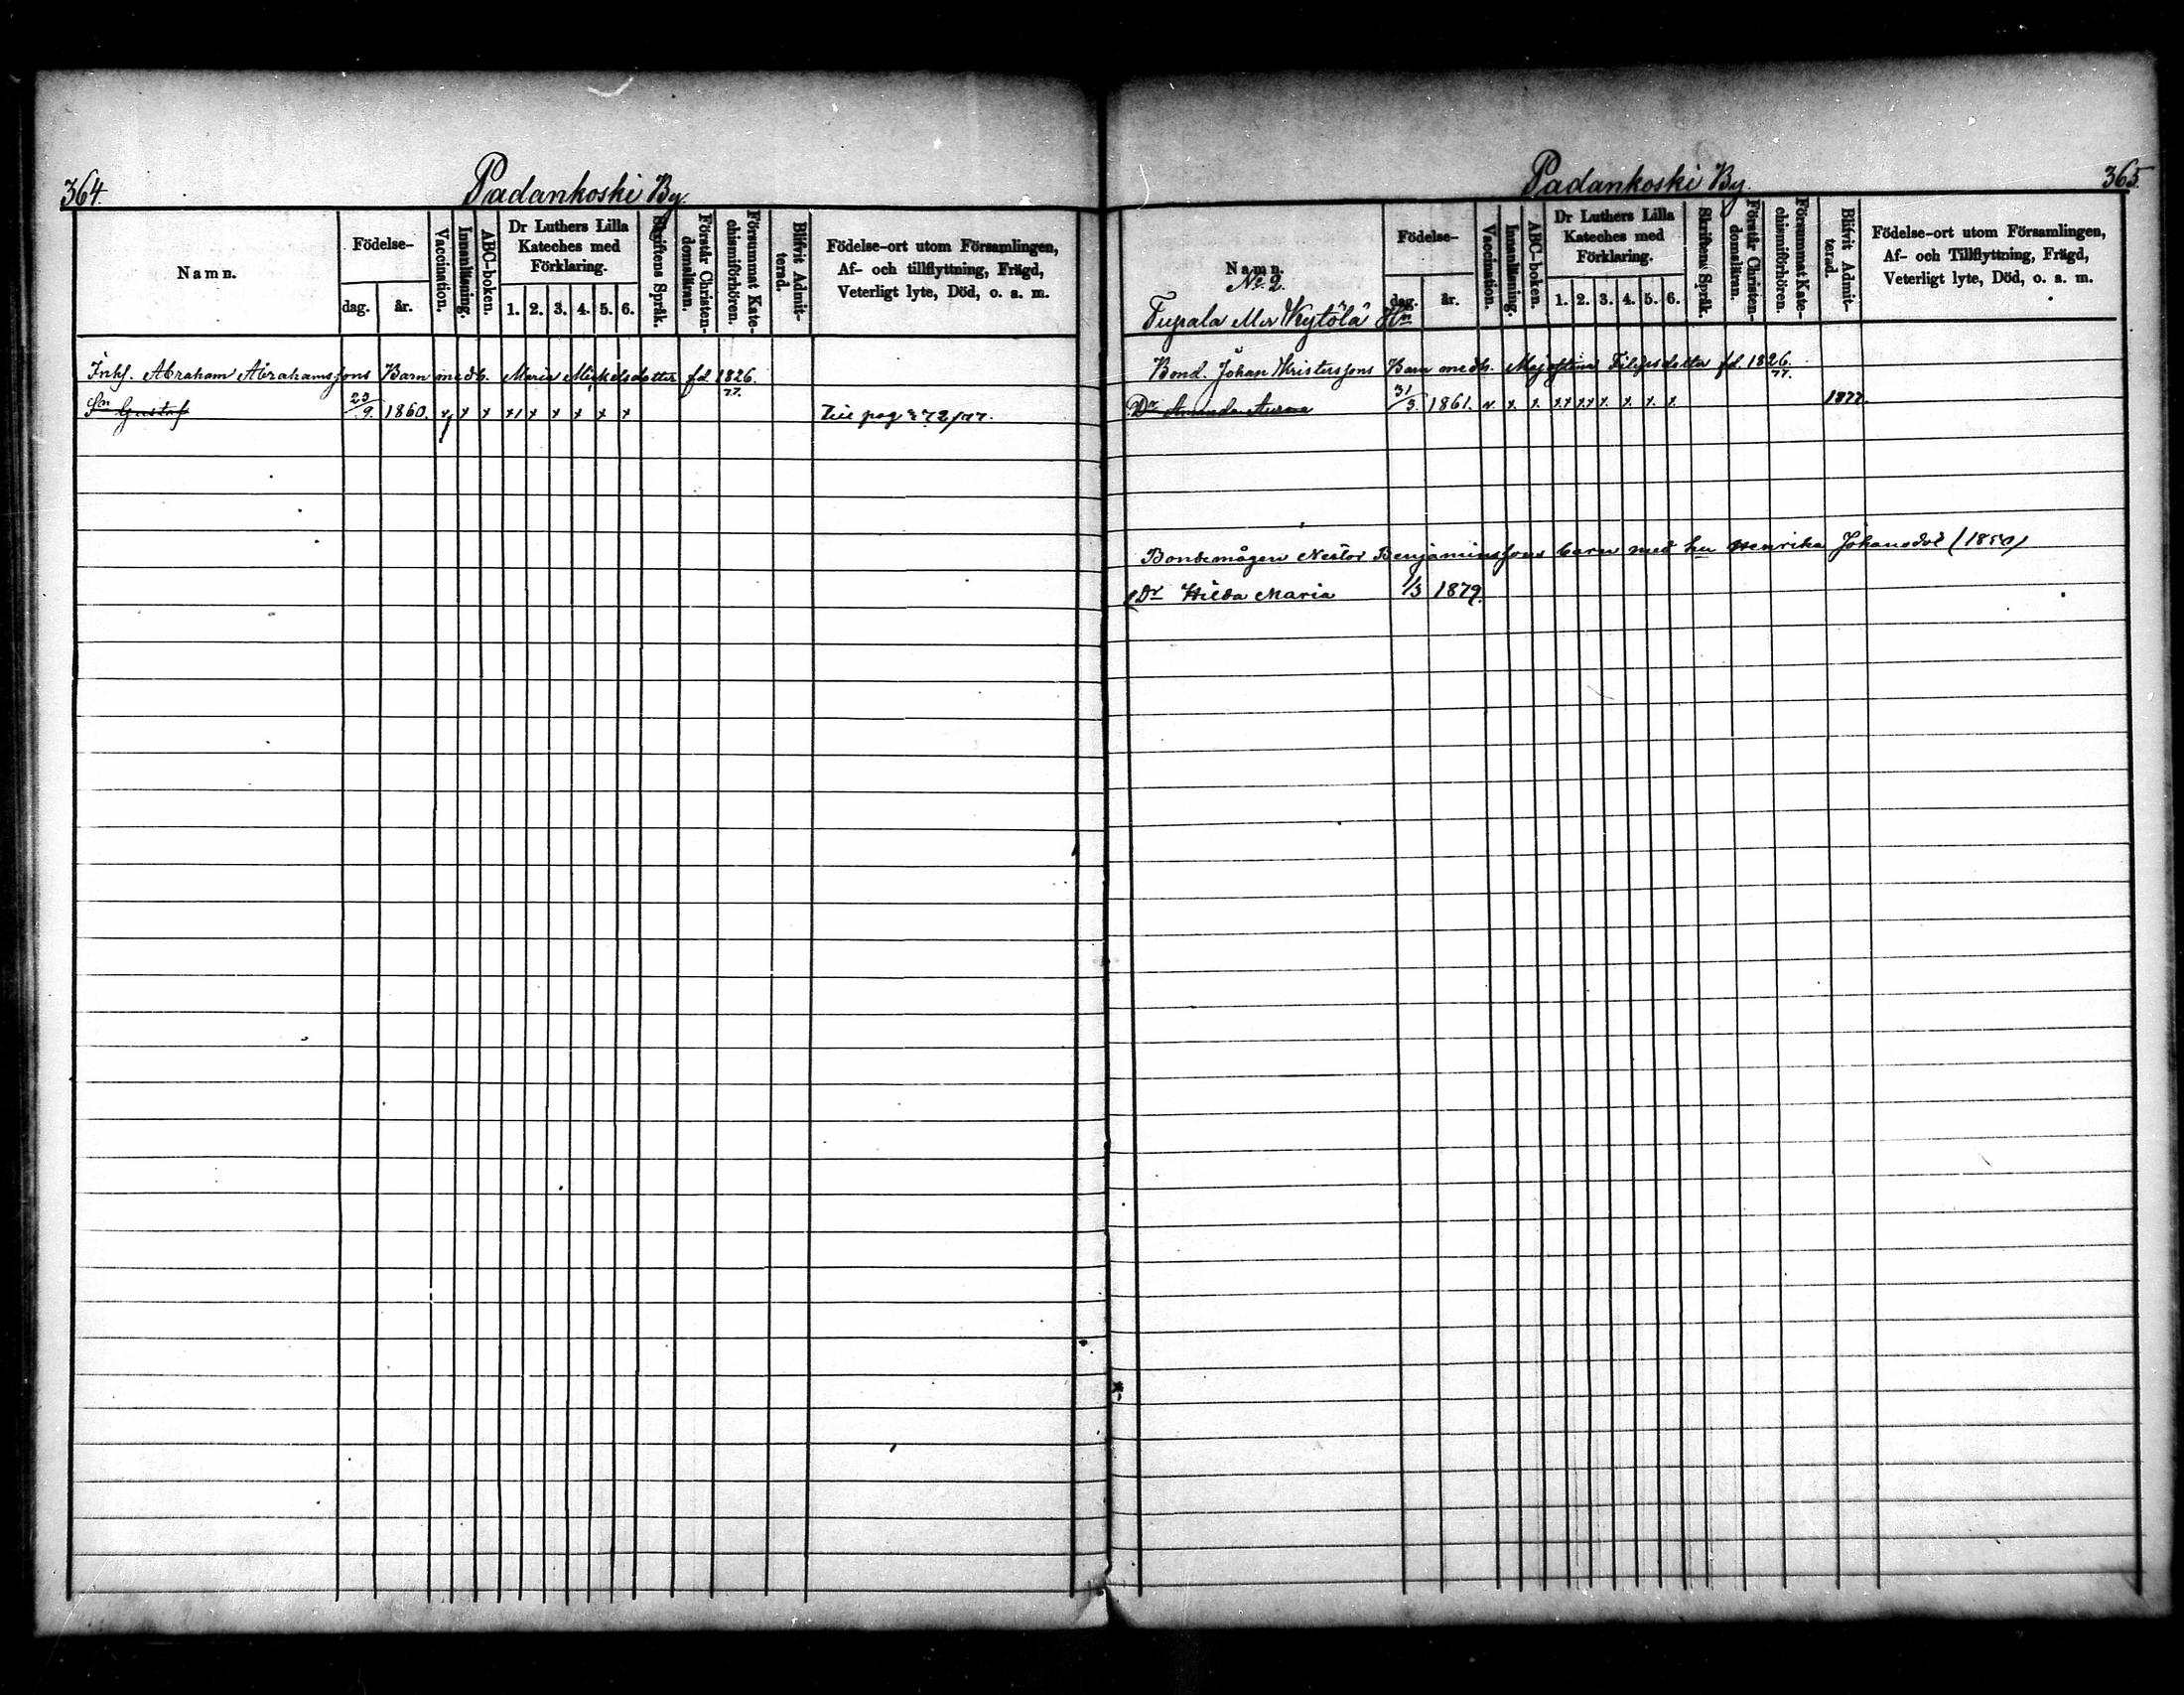 364.
Padankoski By.
Namn.
Födelse-
dag.
år.
Vaccination.
Innanläsning.
ABC-boken.
Dr Luthers Lilla
Kateches med
Förklaring.
1. 2. 3. 4. 5. 6.
Skriftens Språk.
Förstår Christen-
domsläran.
Försummat Kate-
chismiförhören.
Blifvit Admit-
terad.
Födelse-ort utom Församlingen,
Af- och tillflyttning, Frägd,
Veterligt lyte, Död, o. a. m.
Inhs. Abraham Abrahamssons Barn med h. Maria Mickelsdotter fd. 1826.
77.
Sn Gustaf 23/9. 1860. x x x x x x x x x Till pag
Padankoski By.
365.
Namn.
No 2.
Tupala eller Kytölä Hn
Födelse-
dag.
år.
Vaccination.
Innanläsning.
ABC-boken.
Dr Luthers Lilla
Kateches med
Förklaring.
1. 2. 3. 4. 5. 6.
Skriftens Språk.
Förstår Christen-
domsläran.
Försummat Kate-
chismiförhören.
Blifvit Admit-
terad.
Födelse-ort utom Församlingen,
Af- och Tillflyttning, Frägd,
Veterligt lyte, Död, o. a. m.
Bond. Johan Kristerssons Barn med h. Filipsdotter fd. 1826.
77.
Dr Amanda 1861. v. x. x. xx xx x. x. x. x. 1877.
Bondemågen Nestor Benjaminssons barn med hu Henrika Johansdot (1850)
Dr Hilda Maria 1/3 1879.